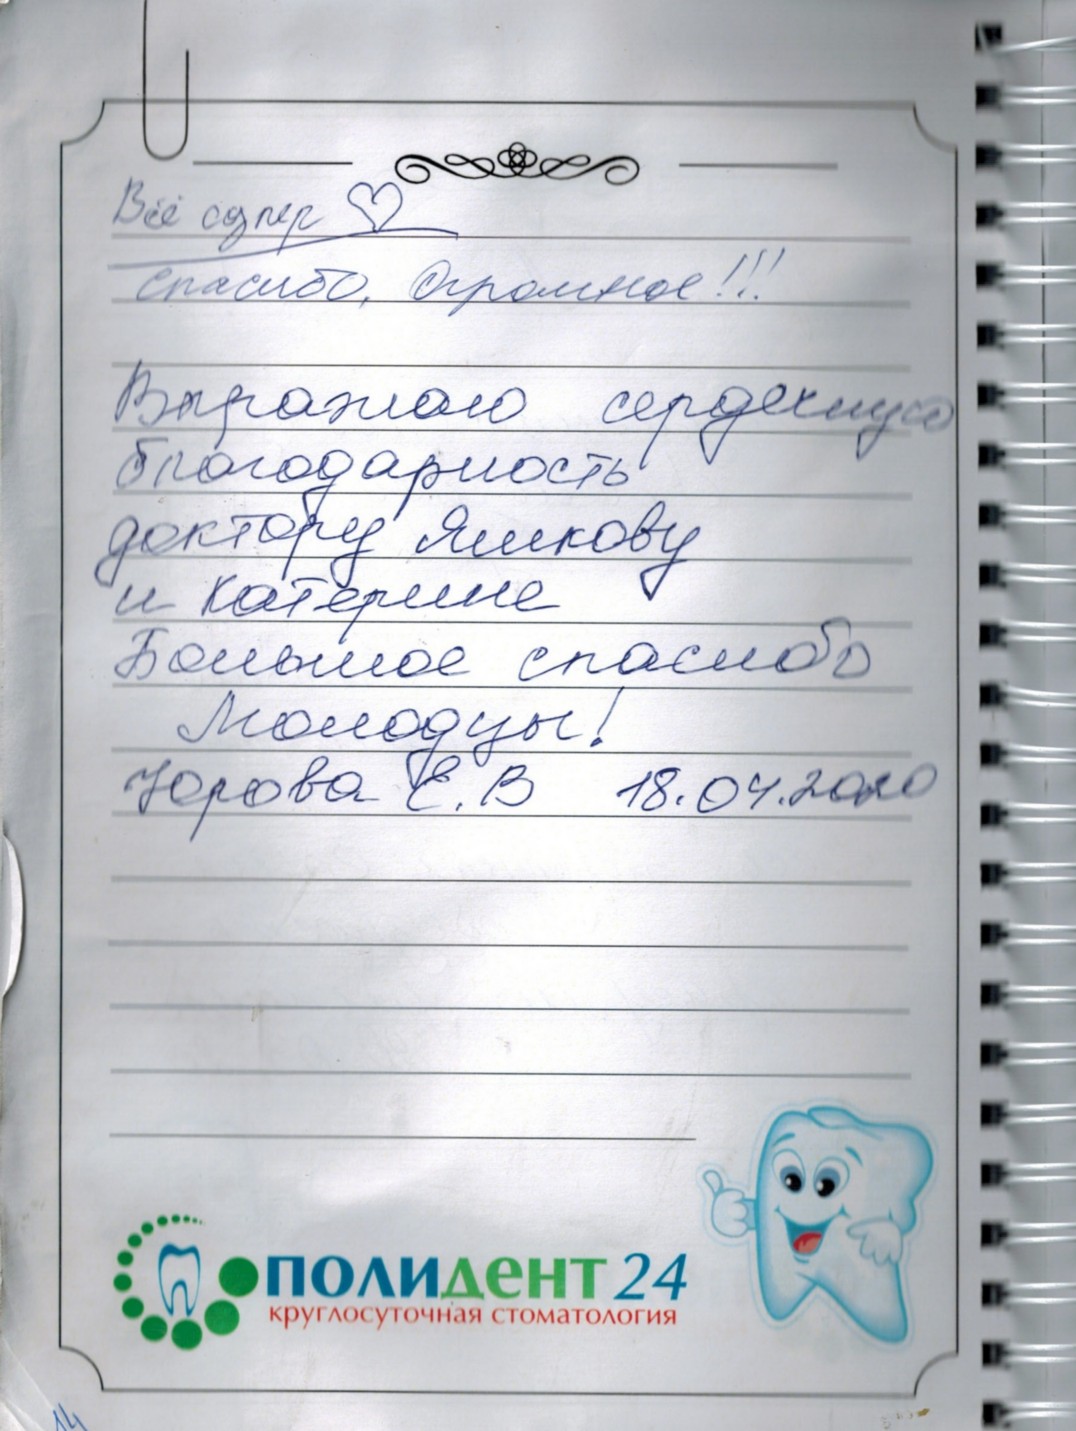 Всё супер
Спасибо, Огромное!!!
Выражаю сердечную
благодарность
доктору Яшкову
и Катерине
Большое спасибо
Молодцы!
Юрова Е.В 18.04.2020
ПОЛИДЕНТ 24
круглосуточная стоматология
14